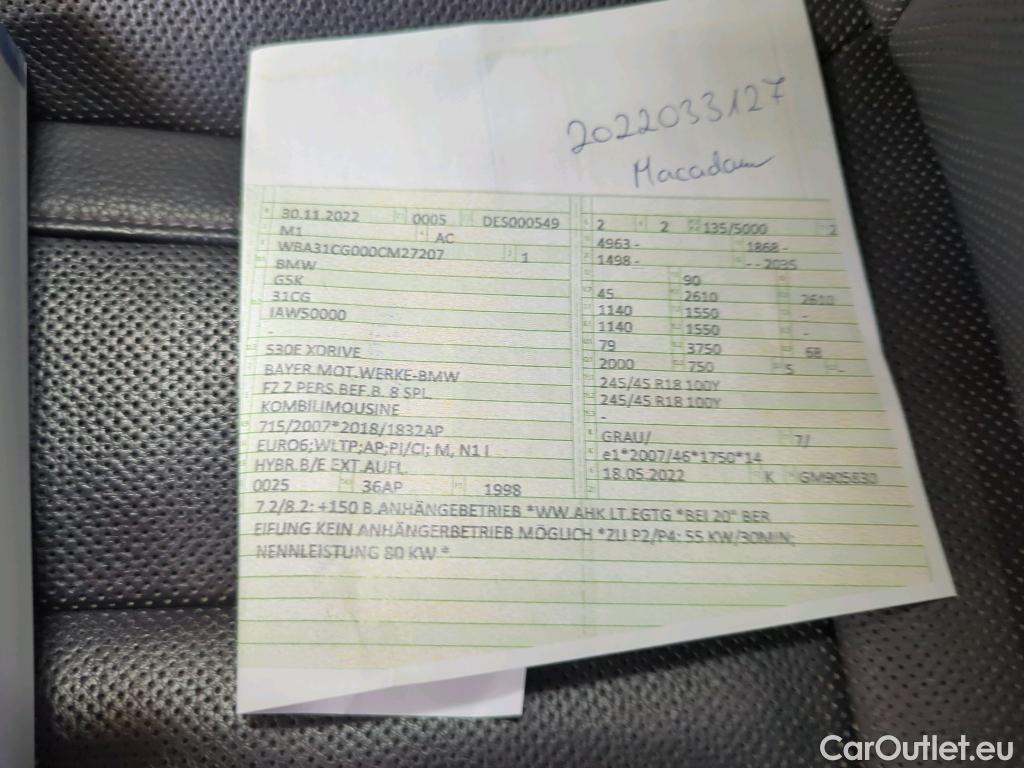 2022033127
Macadam
30.11.2022 0005 DES000549
M1 AC
WBA31CG000CM27207 1
BMW
G5K
31CG
IAW50000
-
530E XDRIVE
BAYER.MOT.WERKE-BMW
FZ.Z.PERS.BEF.B. 8 SPL.
KOMBILIMOUSINE
715/2007*2018/1832AP
EURO6;WLTP;AP;PI/CI; M, N1 I
HYBR.B/E EXT.AUFL.
0025 36AP 1998
2 2 135/5000 2
4963 - 1868 -
1498 - - - 2035
90
45 2610 2610
1140 1550 -
1140 1550 -
79 3750 68
2000 750 5 -
245/45 R18 100Y
245/45 R18 100Y
-
GRAU/ 7/
e1*2007/46*1750*14
18.05.2022 K GM905830
7.2/8.2: +150 B.ANHÄNGEBETRIEB *WW.AHK LT.EGTG *BEI 20" BER
EIFUNG KEIN ANHÄNGERBETRIEB MÖGLICH *ZU P2/P4: 55 KW/30MIN;
NENNLEISTUNG 80 KW *
CarOutlet.eu